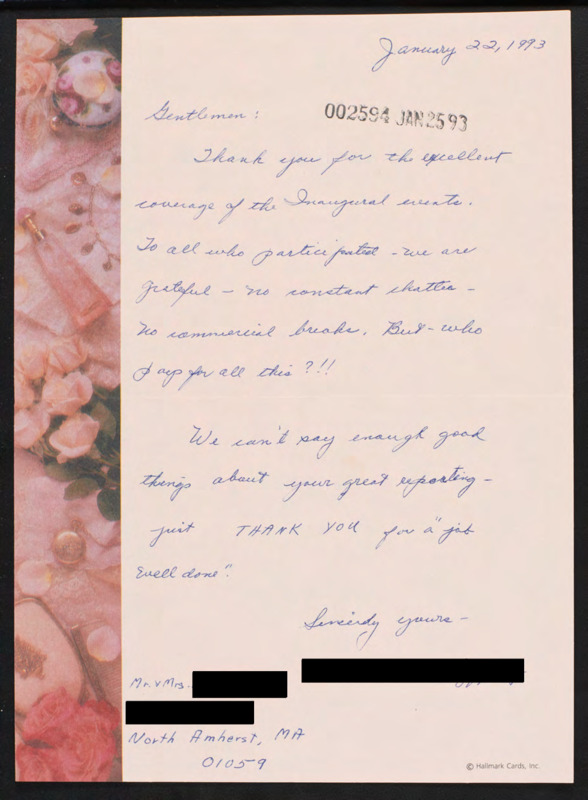 January 22, 1993
Gentlemen:
002594 JAN 25 93
Thank you for the excellent
coverage of the Inaugural events.
To all who participated - we are
grateful - no constant chatter -
no commercial breaks. But - who
pays for all this?!!
We can't say enough good
things about your great reporting -
just THANK YOU for a "job
well done".
Sincerely yours -
Mr. & Mrs.
North Amherst, MA
01059
© Hallmark Cards, Inc.